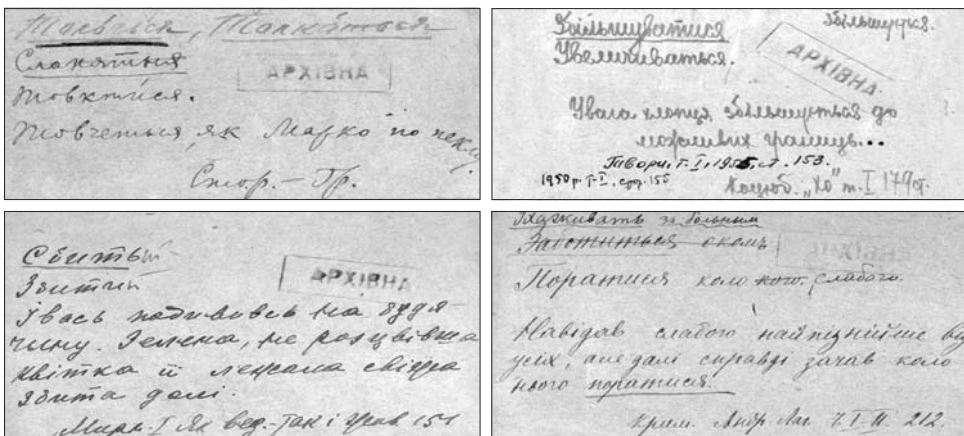 Толкаться
Слоняться
АРХІВНА
Товктися.
Товчеться, як Марко по пеклу.
Збільшуватися
Збільшується.
Увеличиваться.
АРХІВНА
Увага хлопця збільшується до
можливих границь...
Твори, т. I, 1955, ст. 153.
1950 р. т. I, стор. 155
Коцюб. „Хо" т. I 179 ст.
Сбитый
Збитий
АРХІВНА
Івась подививсь на будя-
чину. Зелена, не розцвівша
квітка її лежала свіжа
збита долі.
Мирн. I як вед.-так і 151
Ухаживать за больным
Заботиться о ком
АРХІВНА
Поратися коло кого. слабого.
Навідав слабого найпізнійше від
усіх, але далі справді зачав коло
нього поратися.
Крим. Андр. Лаг. Ч. I-II. 212.